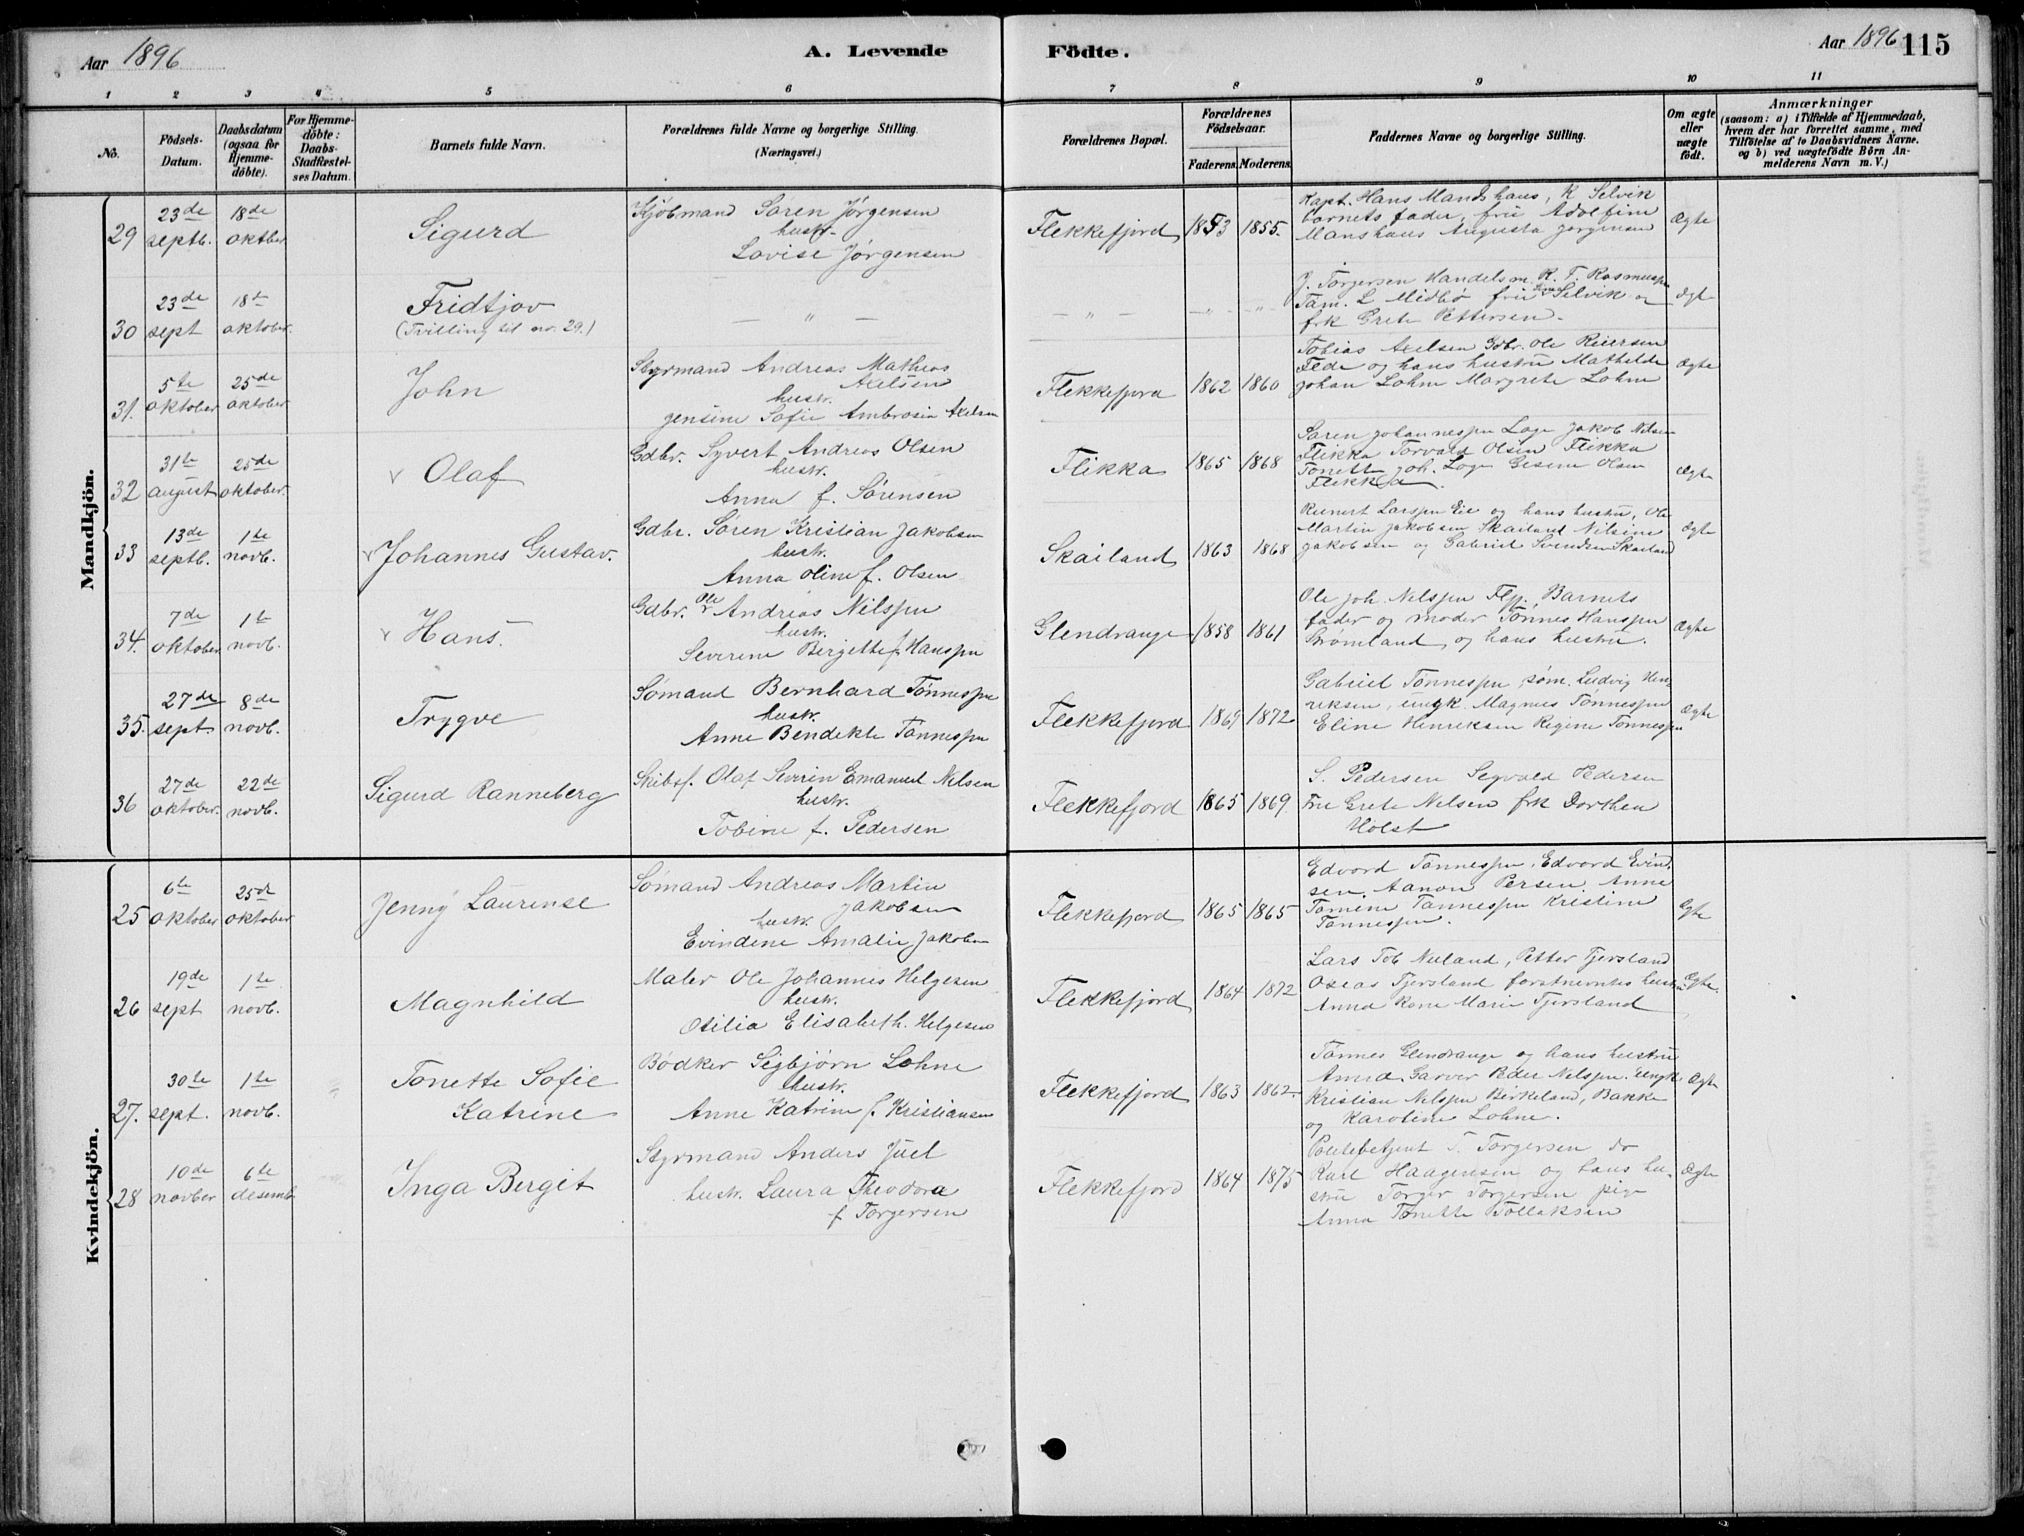 Aar 1896
A. Levende
Födte.
Aar 1896 115
1 2 3 4 5 6 7 8 9 10 11
No.
Födsels-
Datum.
Daabsdatum
(ogsaa for
Hjemme-
döbte).
For Hjemme-
döbte:
Daabs-
Stadfæstel-
ses Datum.
Barnets fulde Navn.
Forældrenes fulde Navne og borgerlige Stilling.
(Næringsvei.)
Forældrenes Bopæl.
Forældrenes
Födselsaar.
Faderens. Moderens.
Faddernes Navne og borgerlige Stilling.
Om ægte
eller
uægte
födt.
Anmærkninger
(saasom: a) i Tilfælde af Hjemmedaab,
hvem der har forrettet samme, med
Tilföielse af to Daabsvidners Navne.
og b) ved uægtefödte Börn An-
melderens Navn m. V.)
Mandkjön.
29
23de
septb.
18de
oktber
Sigurd
Kjøbmand Søren Jørgensen
hustr.
Lovise Jørgensen
Flekkefjord 1853 1855.
Kapt. Hans Manshaus, K Selvik
barnets fader, frue Adolfine
Manshaus Augusta Jørgensen
Ægte
30
23de
sept
18de
oktober.
Fridtjov
(Tvilling til no. 29.)
— " —
— " —
J. Torgersen Handelsm. R. T. Rasmussen
Tam. L Midbø frue Selvik og
frk Grete Pettersen.
Ægte
31.
5te
oktober
25de
oktober
John
Styrmand Andreas Mathias
Axelsen
hustr.
Gensine Sofie Ambrosia Axelsen
Flekkefjord 1862 1860
Tobias Axelsen Gdbr. Ole Reiersen
Fede og hans hustru Mathilde
Johan Lohne Margrete Lohne
Ægte
32
31te
august
25de
oktober.
Olaf
Gdbr. Syvert Andreas Olsen
hustr.
Anna f. Sørensen
Flikka 1865 1868
Søren Johannesen Loge Jakob Nilsen
Flikka Torvald Olsen Flikka
Tonette Joh. Loge Gesine Olsen
Flikka.
Ægte
33
13de
septb.
1te
novb.
Johannes Gustav.
Gdbr. Søren Kristian Jakobsen
hustr.
Anna Oline f. Olsen
Skailand 1863 1868
Reinert Larssen Eie og hans hustru, Ole
Martin Jakobsen Skailand Nilsine
Jakobsen og Gabriel Svendsen Skailand
Ægte
34.
7de
oktober
1te
novb.
Hans
Gdbr. Ole Andreas Nilssen
hustr.
Severine Birgitte f. Hanssen
Glendrange 1858 1861
Ole Joh. Nilssen Barnets
fader og moder Tønnes Hanssen
Grømland og hans hustru.
Ægte
35.
27de
sept
8de
novb.
Trygve
Sømand Bernhard Tønnessen
hustr.
Anne Bendikte Tønnessen
Flekkefjord 1869 1872
Gabriel Tønnessen, søm. Ludvig Hen-
riksen, ungk. Magnus Tønnessen
Eline Henriksen Regine Tønnessen
Ægte
36
27de
oktober.
22de
novb.
Sigurd Ranneberg
Skibsf. Olaf Severin Emanuel Nilsen
hustr.
Tobine f. Pedersen
Flekkefjord 1865 1869
S. Pedersen Segvald Pedersen
Frue Grete Nilsen frk Dorthea
Holst
Kvindekjön.
25
6te
oktober
25de
oktober
Jenny Laurense
Sømand Andreas Martin
Jakobsen
hustr.
Evindine Amalie Jakobsen
Flekkefjord 1865 1865
Edvard Tønnessen. Edvard Evind-
sen, Aanon Persen. Anne
Tomine Tønnessen Kristine
Tønnessen.
Ægte
26
19de
sept
1te
novb.
Magnhild
Maler Ole Johannes Helgesen
hustr.
Otilia Elisabeth Helgesen
Flekkefjord 1864 1872
Lars Tob Nuland, Petter Tjersland
Oseas Tjersland forstnevntes hustru
Anna Karn Marie Tjersland
Ægte.
27.
30te
sept.
1te
novb.
Tonette Sofie
Katrine
Bødker Sigbjørn Lohne
hustr.
Anne Katrine f. Kristiansen
Flekkefjord 1863 1862
Tønnes Glendrange og hans hustru
Anna. Garver Peder Nilssen. ungk.
Kristian Nilssen Birkeland, Bakke
og Karoline Lohne.
Ægte
28
10de
novber
6te
desemb
Inga Bergit
Styrmand Anders Juel
hustr. Laura Theodora
f Torgersen
Flekkefjord 1864 1875
Politibetjent T. Torgersen do
Karl Haagensen og hans hu-
stru Torger Torgersen pige
Anna Tonette Tollaksen
Ægte